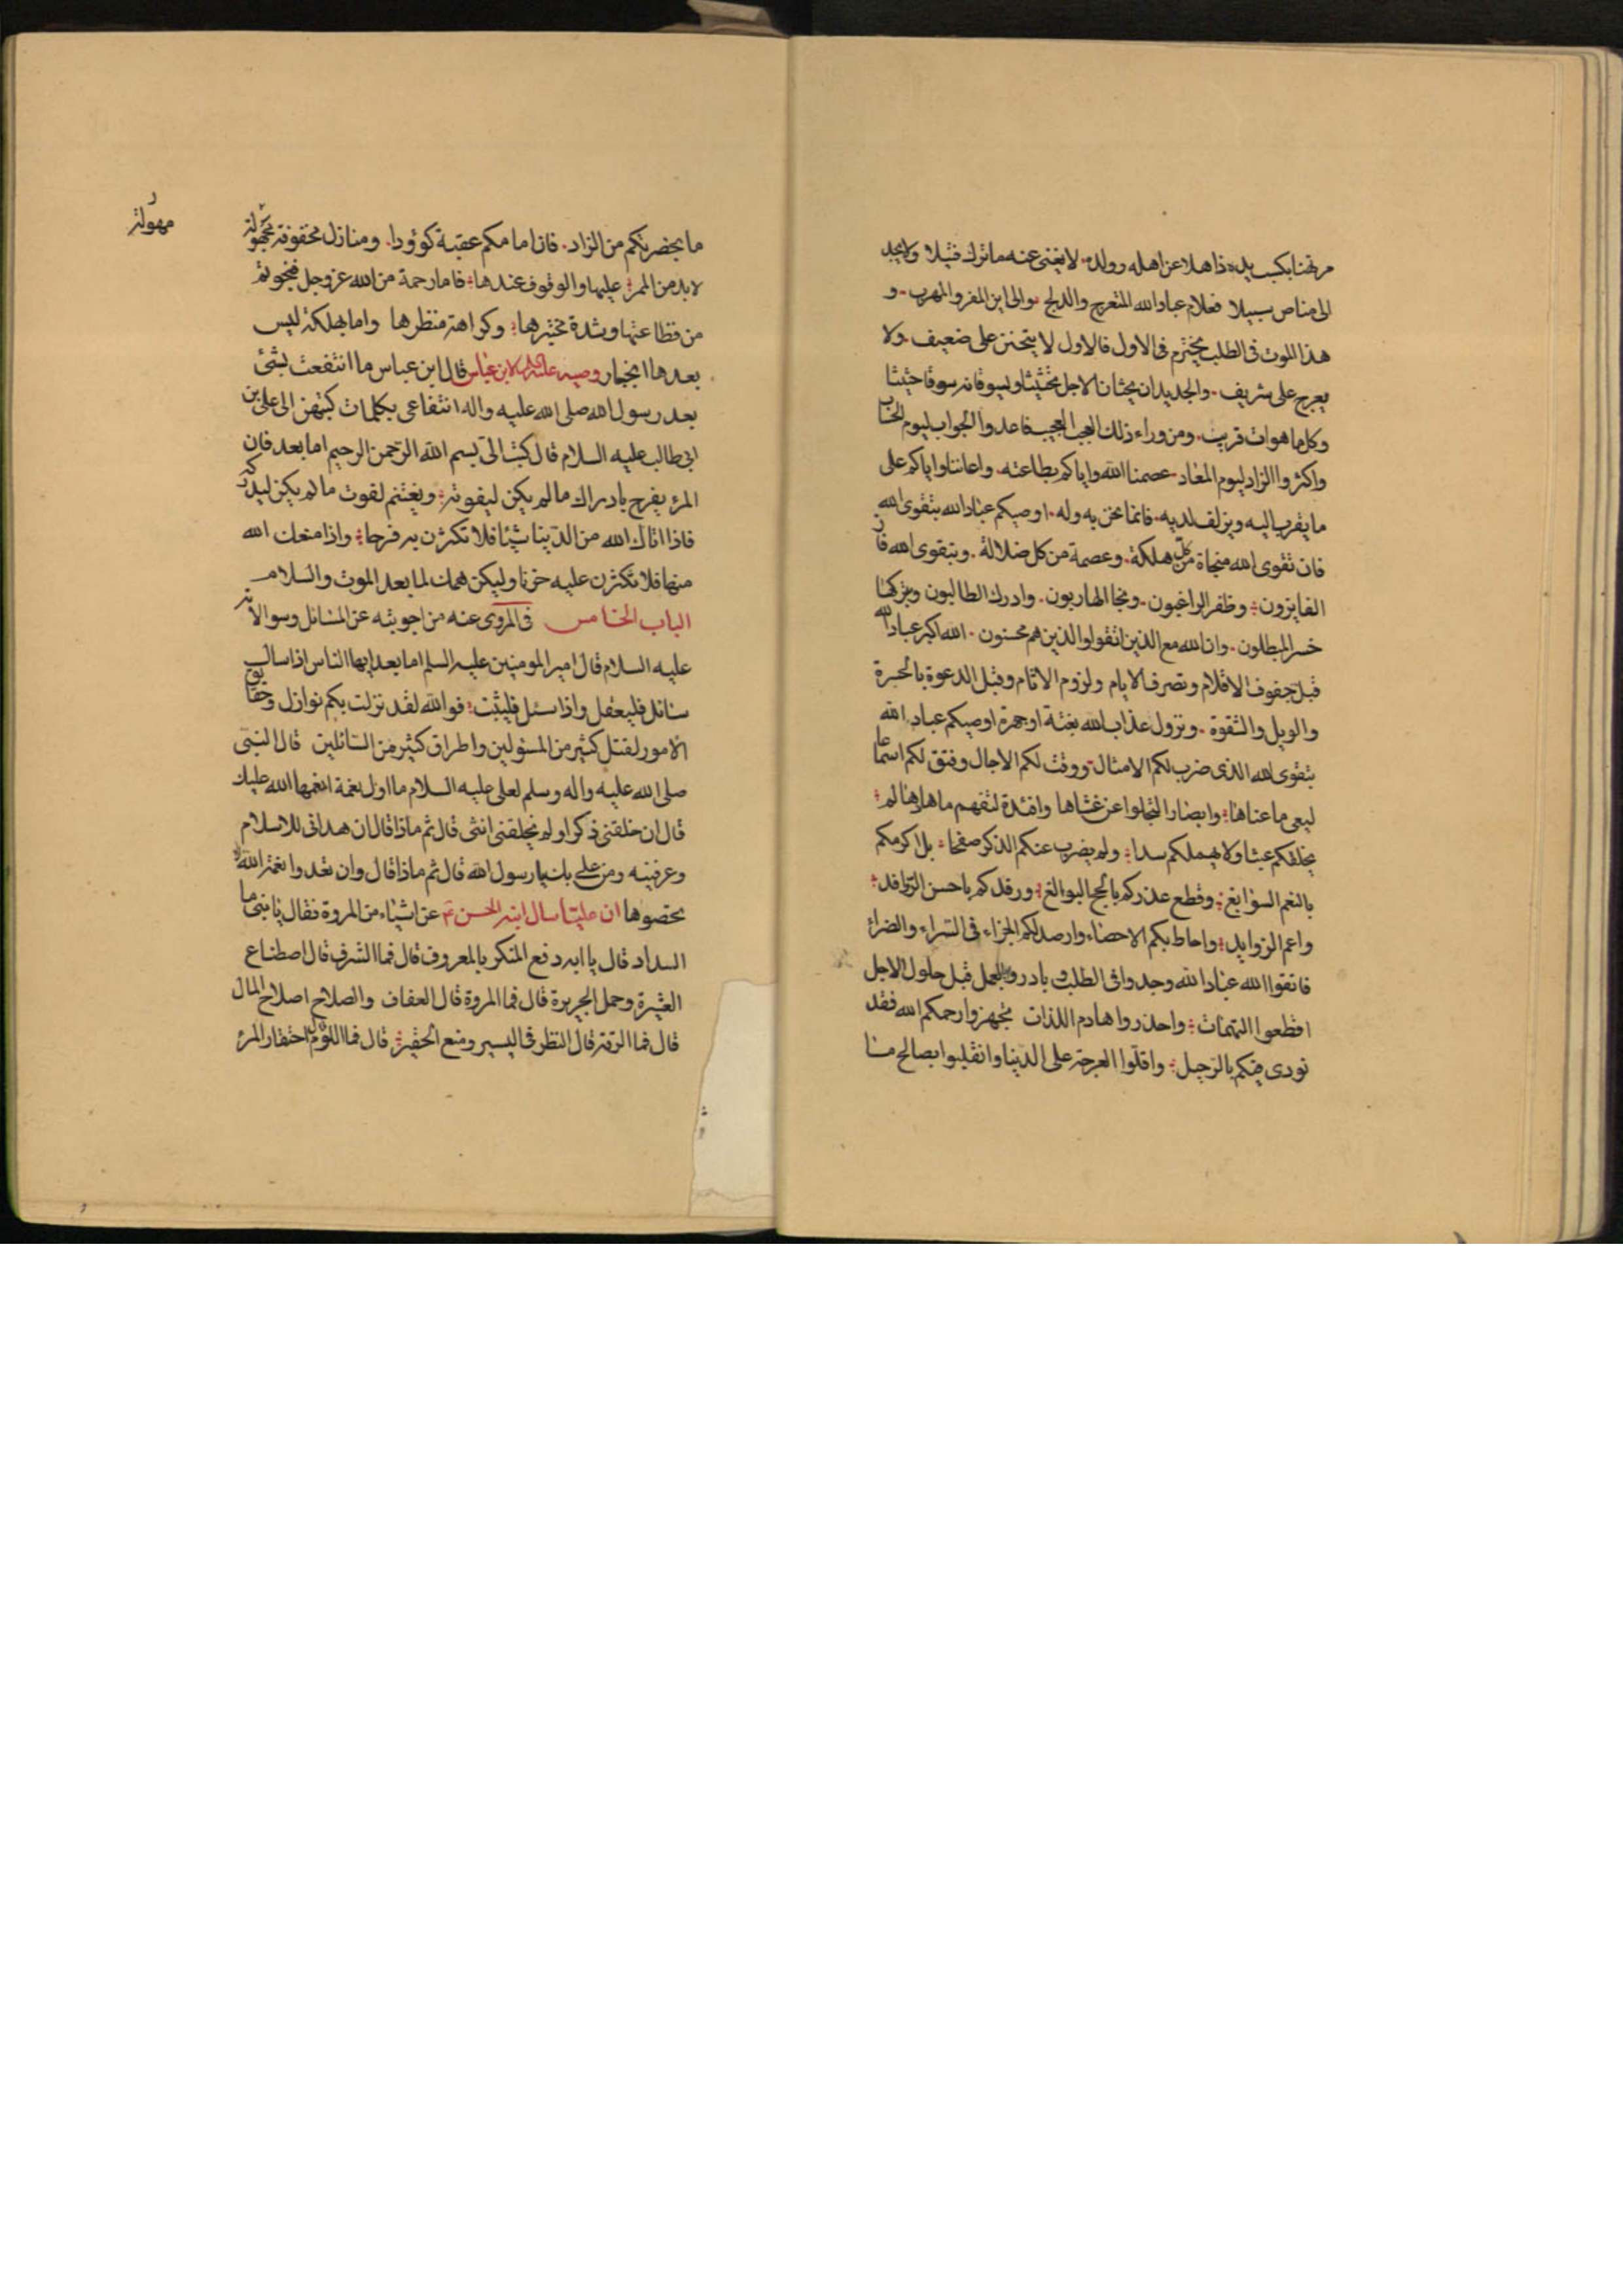 مرتهنا بكسب يده ذاهلا عن اهله وولده لا يغنى عنه ما ترك فتيلا ولا يجد
الى مناص سبيلا فعلام عباد الله المتعرج والدلج والى اين المفر والمهرب و
هذا الموت فى الطلب يخترم فى الاول فالاول لا يتحنن على ضعيف ولا
يعرج على شريف والجديدان يحثان الاجل تحثيثا ويسوقانه سوقا حثيثا
وكل ما هوات قريب ومن وراء ذلك العجب العجيب فاعدوا الجواب ليوم الحساب
واكثروا الزاد ليوم المعاد عصمنا الله واياكم بطاعته واعاننا واياكم على
ما يقرب اليه ويزلف لديه فانما نحن به وله اوصيكم عباد الله بتقوى الله
فان تقوى الله منجاة من كل هلكة وعصمة من كل ضلالة وبتقوى الله فاز
الفايزون وظفر الراغبون ونجا الهاربون وادرك الطالبون وبتركها
خسر المبطلون وان الله مع الذين اتقوا والذين هم محسنون الله اكبر عباد الله
قبل جفوف الاقلام وتصرف الايام ولزوم الاثام وقبل الدعوة بالحسرة
والويل والشقوة ونزول عذاب الله بغتة او جهرة اوصيكم عباد الله
بتقوى الله الذى ضرب لكم الامثال ووقت لكم الاجال وفتق لكم اسماعا
ليعى ما عناها وابصارا لتجلوا عن غشاها وافئدة لتفهم ما دهاها لم
يخلقكم عبثا ولا يهملكم سدا ولم يضرب عنكم الذكر صفحا بل اكرمكم
بالنعم السوابغ وقطع عذركم بالحجج البوالغ ورفدكم باحسن الروافد
واعم الزوايد واحاط بكم الاحصاء وارصد لكم الجزاء فى السراء والضراء
فاتقوا الله عباد الله وجدوا فى الطلب و بادروا بالعمل قبل حلول الاجل
اقطعوا النهمات واحذروا هادم اللذات تجهزوا رحمكم الله فقد
نودى فيكم بالرحيل واقلوا العرجة على الدنيا وانقلبوا بصالح ما
مهولة
ما بحضرتكم من الزاد فان امامكم عقبة كوؤدا ومنازل مخوفة مجهولة
لابد من الممر عليها والوقوف عندها فاما رحمة من الله عز وجل فنجوتم
من فظاعتها وشدة مختبرها وكراهة منظرها واما بهلكة ليس
بعدها انجبار وصيه عليه السلام لابن عباس قال ابن عباس ما انتفعت بشئ
بعد رسول الله صلى الله عليه واله انتفاعى بكلمات كتبهن الى على بن
ابى طالب عليه السلام قال كتب الى بسم الله الرحمن الرحيم اما بعد فان
المرء يفرح بادراك ما لم يكن ليفوته ويغتنم لفوت ما لم يكن ليدركه
فاذا اتاك الله من الدنيا شيئا فلا تكثرن به فرحا واذا منعك الله
منها فلا تكثرن عليه حزنا وليكن همك لما بعد الموت والسلام
الباب الخامس فى المروى عنه من اجوبته عن المسائل وسوالاته
عليه السلام قال امير المومنين عليه السلم اما بعد ايها الناس اذا سال
سائل فليعقل واذا سئل فليثبت فوالله لقد نزلت بكم نوازل وحقايق
الامور لفشل كثير من المسئولين واطراق كثير من السائلين قال النبى
صلى الله عليه واله وسلم لعلى عليه السلام ما اول نعمة انعمها الله عليك
قال ان خلقنى ذكرا ولم يخلقنى انثى قال ثم ماذا قال ان هدانى للاسلام
وعرفنيه ومن على بك يا رسول الله قال ثم ماذا قال وان تعدوا نعمة الله لا
تحصوها ان عليا سال ابنه الحسن ع عن اشياء من المروة فقال يا بنى ما
السداد قال يا ابه دفع المنكر بالمعروف قال فما الشرف قال اصطناع
العشيرة وحمل الجريرة قال فما المروة قال العفاف والصلاح اصلاح المال
قال فما الرقة قال النظر فى اليسير ومنع الحقير قال فما اللؤم قال احتقار المرء